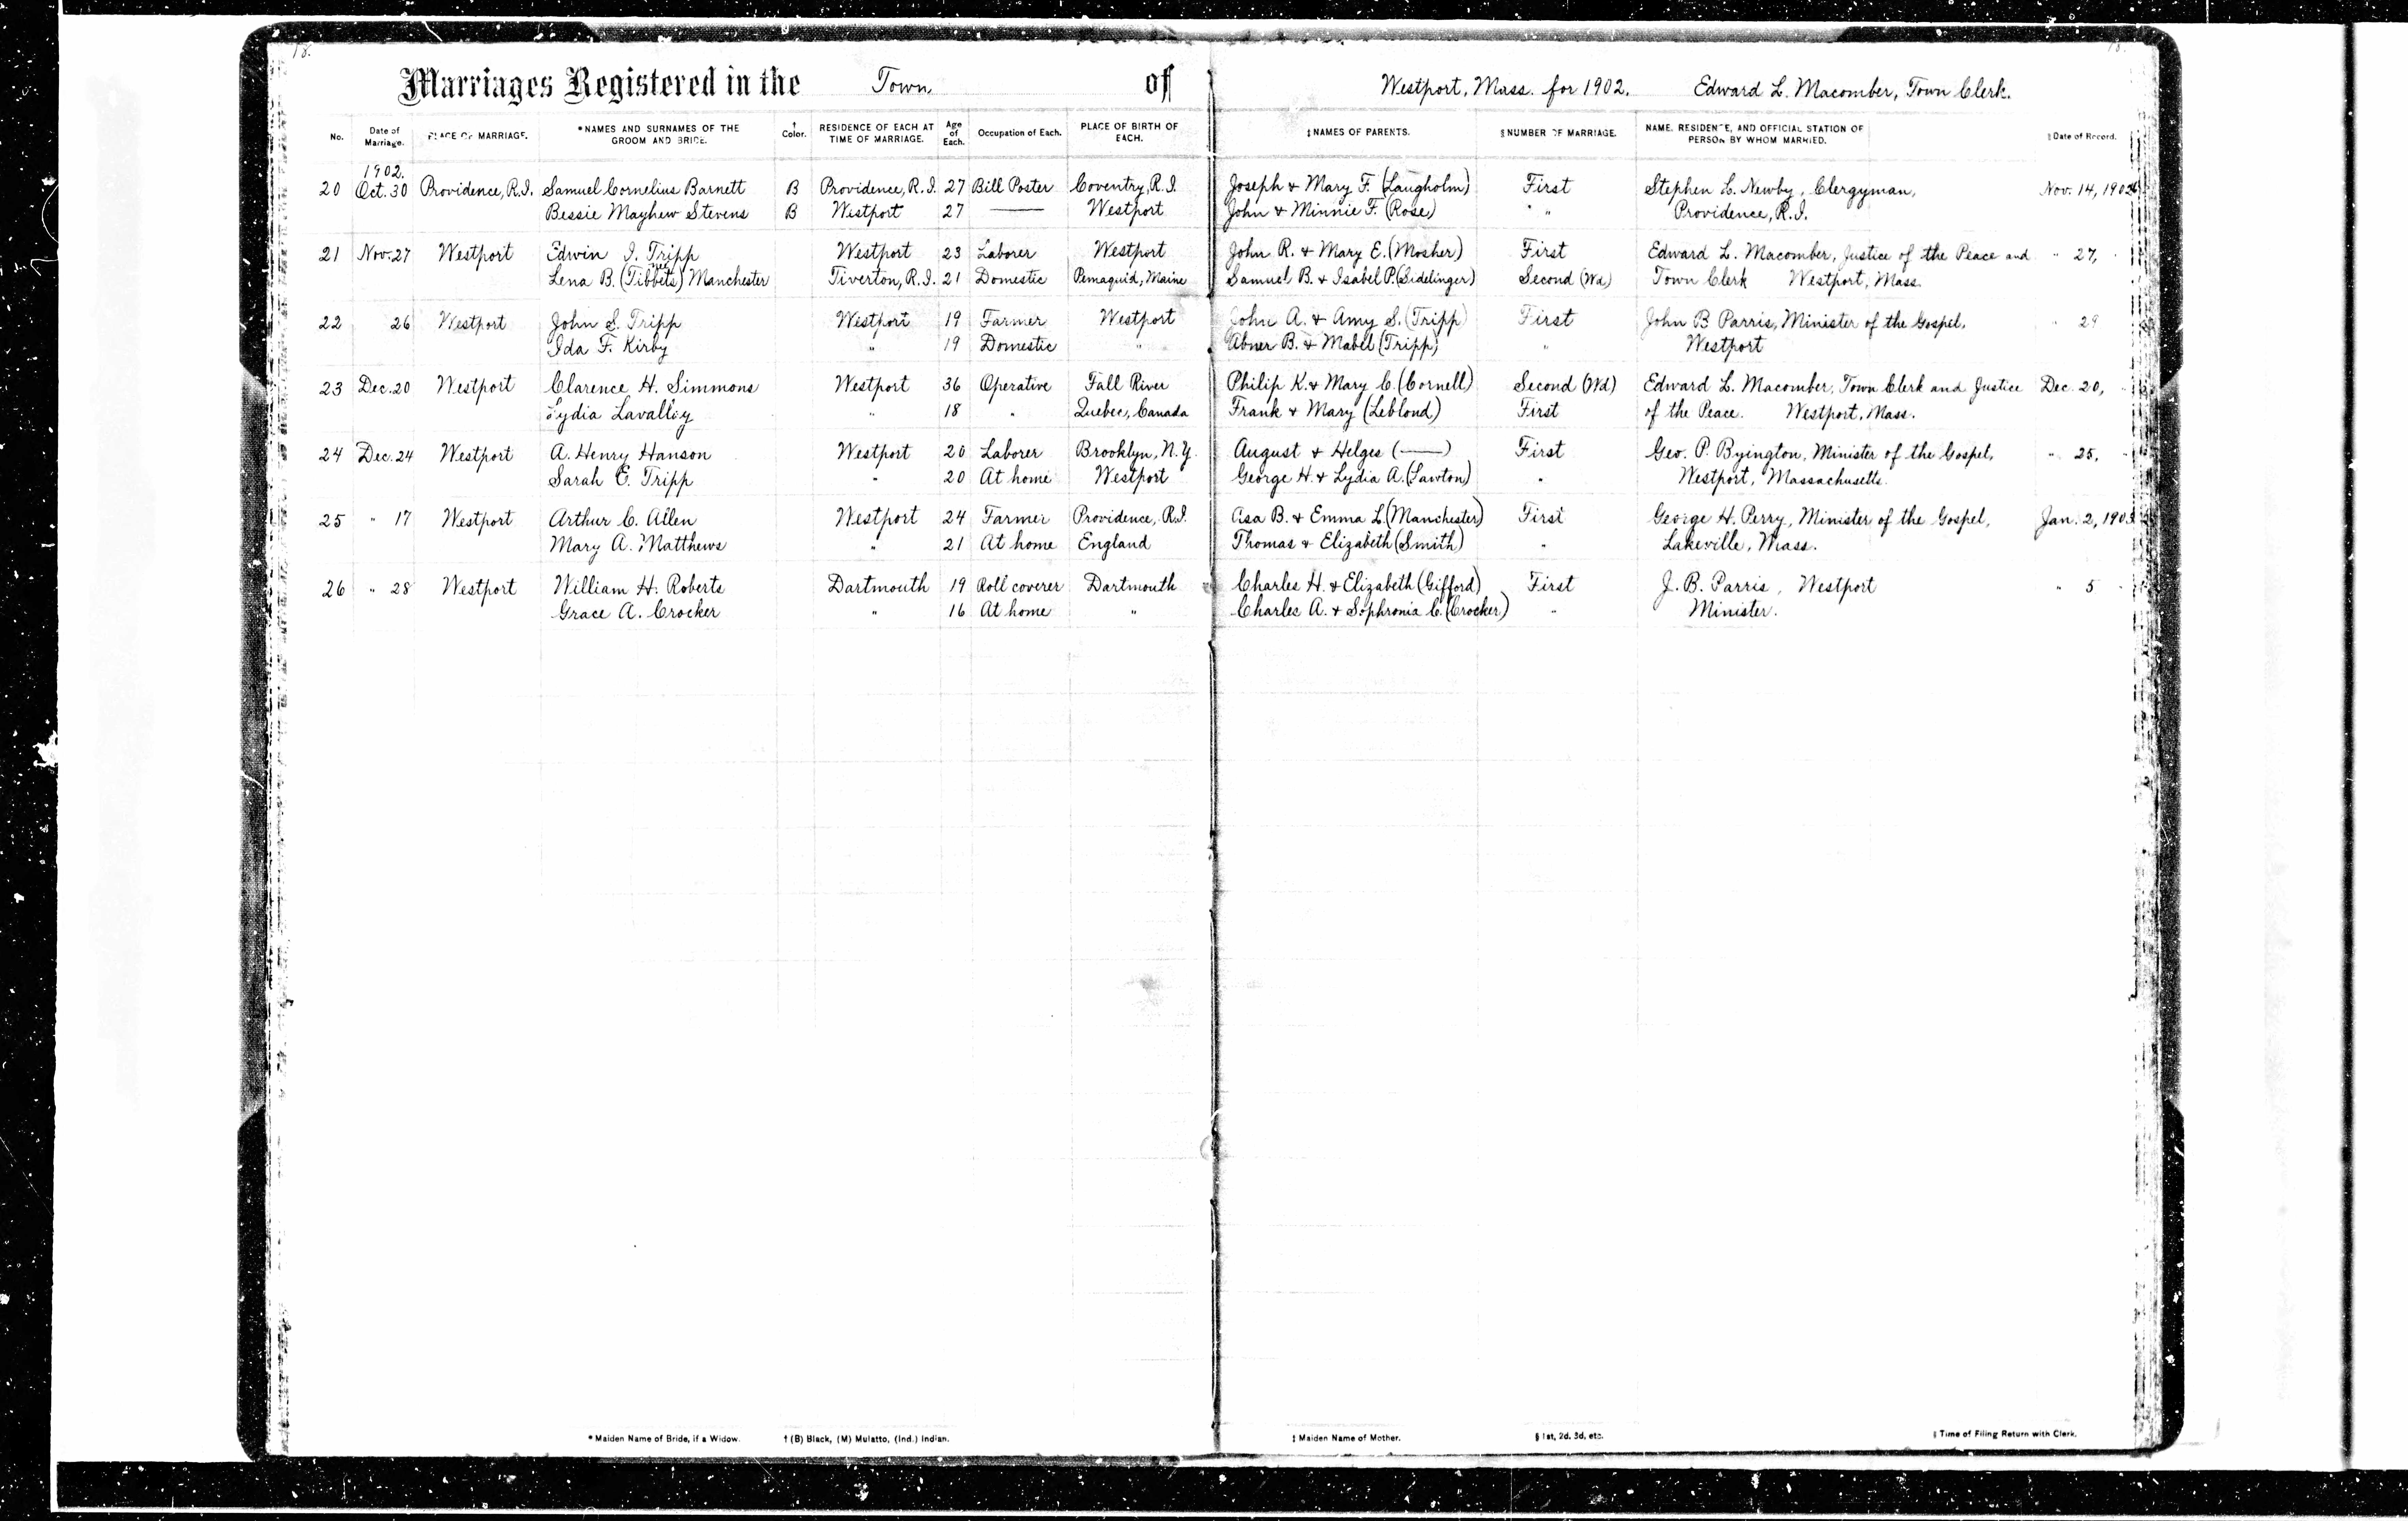 18. 18.
Marriages Registered in the Town of Westport, Mass. for 1902. Edward L. Macomber, Town Clerk.
No. Date of Marriage. PLACE OF MARRIAGE. *NAMES AND SURNAMES OF THE GROOM AND BRIDE. † Color. RESIDENCE OF EACH AT TIME OF MARRIAGE. Age of Each. Occupation of Each. PLACE OF BIRTH OF EACH. ‡NAMES OF PARENTS. §NUMBER OF MARRIAGE. NAME, RESIDENCE, AND OFFICIAL STATION OF PERSON BY WHOM MARRIED. ‖Date of Record.
1902.
20 Oct. 30 Providence, R.I. Samuel Cornelius Barnett B Providence, R.I. 27 Bill Poster Coventry, R.I. Joseph & Mary F. (Laugholm) First Stephen L. Newby, Clergyman, Nov. 14, 1902
Bessie Mayhew Stevens B Westport 27 —— Westport John & Minnie F. (Rose) " " Providence, R.I.
21 Nov. 27 Westport Edwin I. Tripp Westport 23 Laborer Westport John R. & Mary E. (Mosher) First Edward L. Macomber, Justice of the Peace and " 27, "
Lena B. (Tibbets) Manchester Tiverton, R.I. 21 Domestic Pemaquid, Maine Samuel B. & Isabel P. (Sidelinger) Second (Wd) Town Clerk Westport, Mass.
22 26 Westport John S. Tripp Westport 19 Farmer Westport John A. & Amy S. (Tripp) First John B Parris, Minister of the Gospel, " 29
Ida F. Kirby " 19 Domestic " Abner B. & Mabel (Tripp) " Westport
23 Dec. 20 Westport Clarence H. Simmons Westport 36 Operative Fall River Philip K. & Mary C. (Cornell) Second (Wd) Edward L. Macomber, Town Clerk and Justice Dec. 20,
Lydia Lavalley " 18 " Quebec, Canada Frank & Mary (Leblond) First of the Peace. Westport, Mass.
24 Dec. 24 Westport A. Henry Hanson Westport 20 Laborer Brooklyn, N.Y. August & Helges (——) First Geo. P. Byington, Minister of the Gospel, " 25, "
Sarah E. Tripp " 20 At home Westport George H. & Lydia A. (Lawton) " Westport, Massachusetts.
25 " 17 Westport Arthur C. Allen Westport 24 Farmer Providence, R.I. Asa B. & Emma L. (Manchester) First George H. Perry, Minister of the Gospel, Jan. 2, 1903
Mary A. Matthews " 21 At home England Thomas & Elizabeth (Smith) " Lakeville, Mass.
26 " 28 Westport William H. Roberts Dartmouth 19 Roll coverer Dartmouth Charles H. & Elizabeth (Gifford) First J. B. Parris, Westport " 5 "
Grace A. Crocker " 16 At home " Charles A. & Sophronia C. (Crocker) " Minister.
* Maiden Name of Bride, if a Widow. † (B) Black, (M) Mulatto, (Ind.) Indian. ‡ Maiden Name of Mother. § 1st, 2d, 3d, etc. ‖ Time of Filing Return with Clerk.